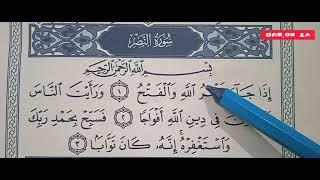 سُورَةُ النَّصْرِ
بِسْمِ اللَّهِ الرَّحْمَٰنِ الرَّحِيمِ
إِذَا جَآءَ اللَّهِ وَالْفَتْحُ ١ وَرَأَيْتَ النَّاسَ
فِي دِينِ اللَّهِ أَفْوَاجًا ٢ فَسَبِّحْ بِحَمْدِ رَبِّكَ
وَاسْتَغْفِرْهُ إِنَّهُ كَانَ تَوَّابًا ٣